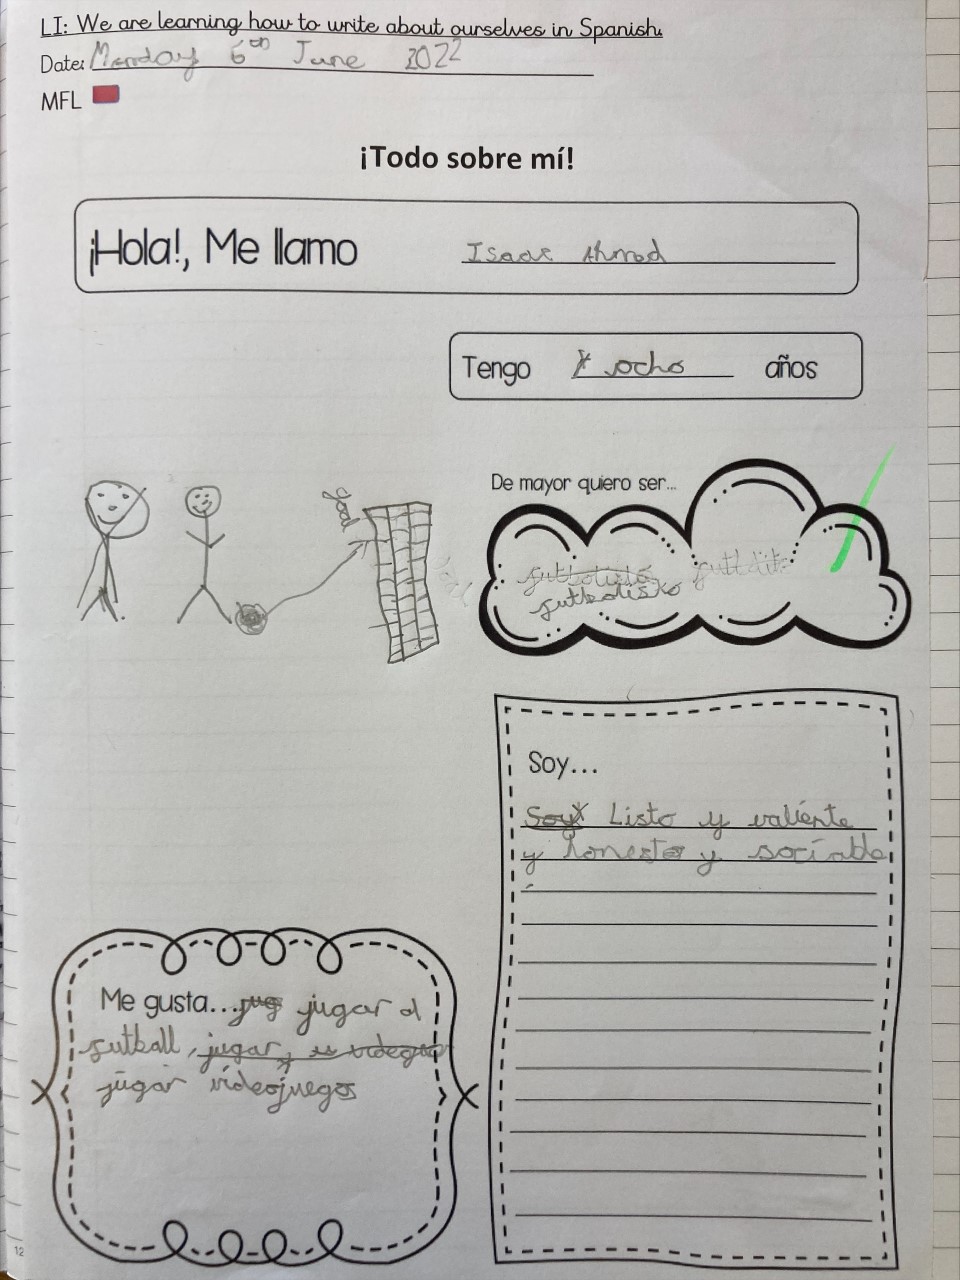 LI: We are learning how to write about ourselves in Spanish.
Date: Monday 6th June 2022
MFL
¡Todo sobre mí!
¡Hola!, Me llamo Isaac Ahmed
Tengo ocho años
goal
De mayor quiero ser...
futbolista
Soy...
Soy Listo y valiente
y honesto y sociable
Me gusta... jug jugar al
futball, jugar
jugar videojuegos
12